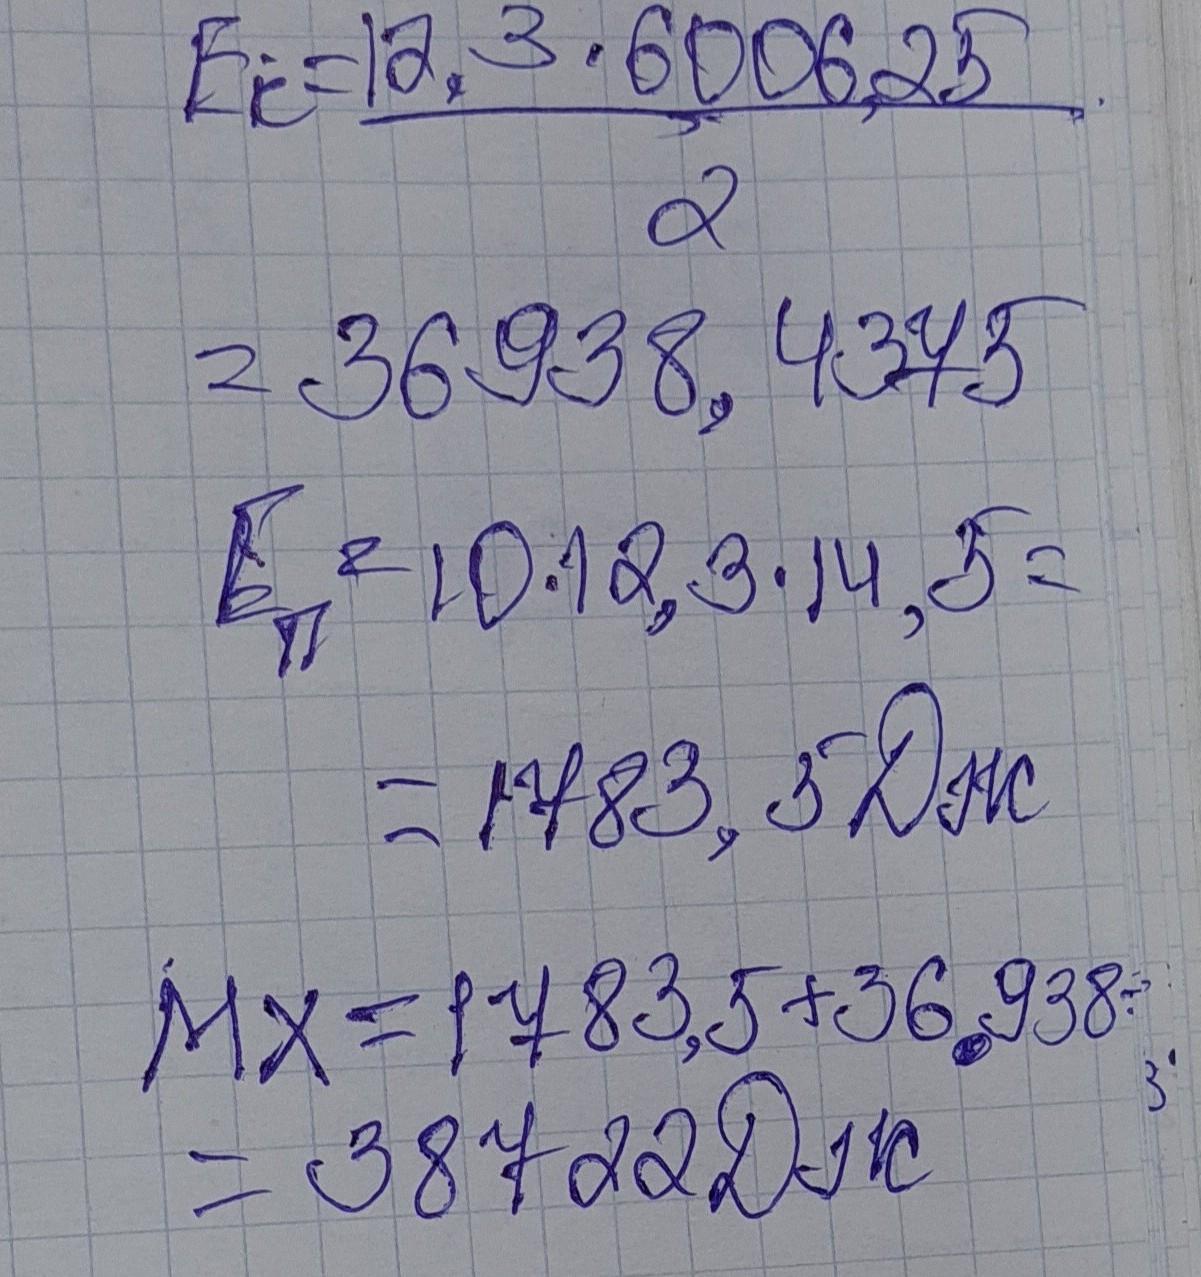 Eк=12,3·6006,25
2
=36938,4375
Eп=10·12,3·14,5=
=1783,5Дж
MX=1783,5+36938=
=38722Дж